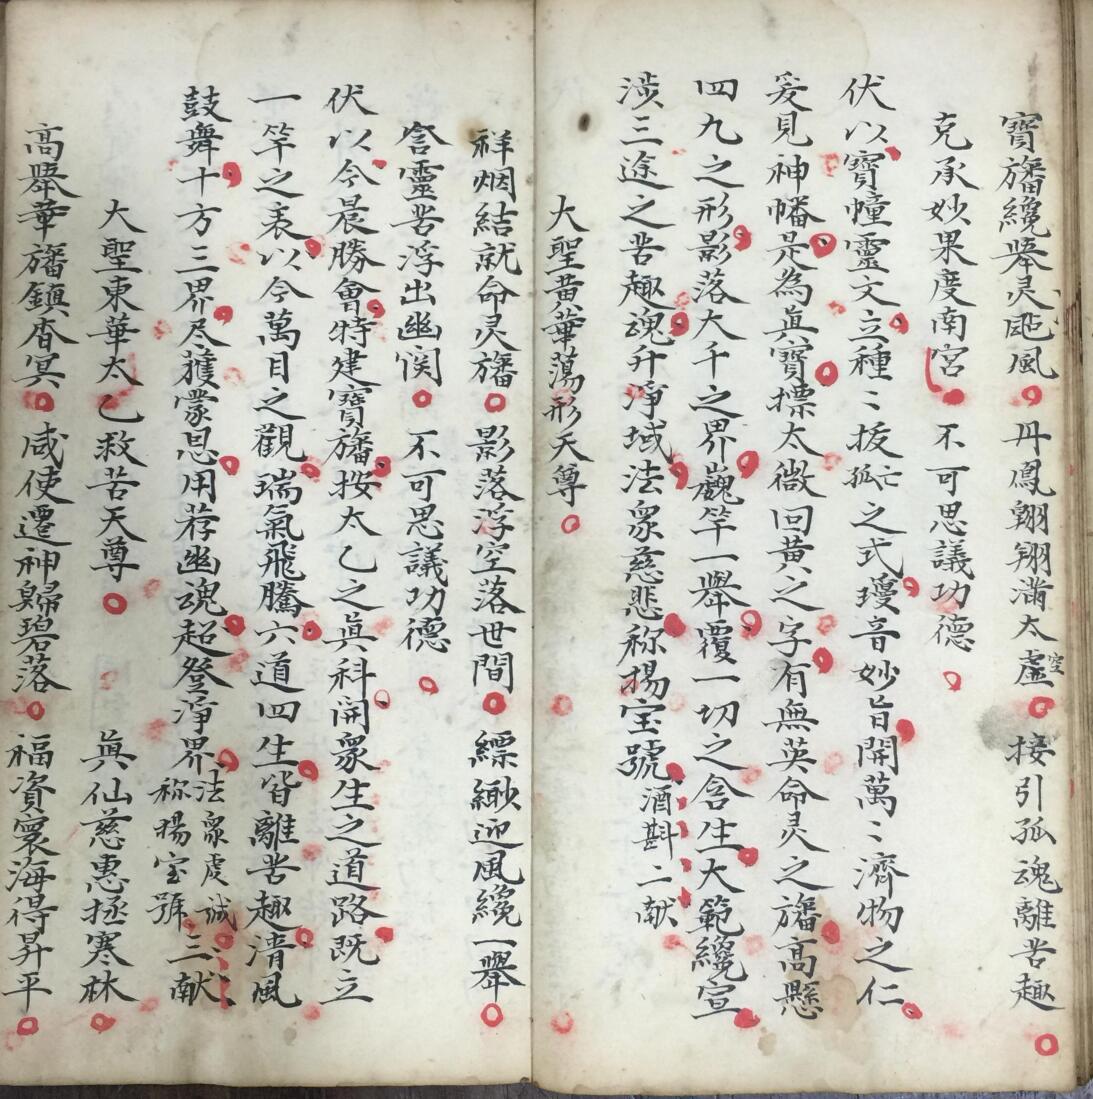 寶旛纔舉灵飈風丹鳳翱翔滿太虛空接引孤魂離苦趣
克承妙果度南宮不可思議功德
伏以寶幢靈文立種〻拔孤亡之式瓊音妙旨開萬〻濟物之仁
爰見神幡是為眞寶標太微回黄之字有無英命灵之旛高懸
四九之形影落大千之界巍竿一舉覆一切之含生大範纔宣
涉三途之苦趣魂升淨域法眾慈悲称揚宝號酒斟二献
大聖黄華蕩形天尊
祥烟結就命灵旛影落浮空落世間縹緲迎風纔一舉
含靈苦浮出幽関不可思議功德
伏以今晨勝會特建寶旛按太乙之眞科開眾生之道路既立
一竿之表以令萬目之觀瑞氣飛騰六道四生皆離苦趣清風
鼓舞十方三界尽獲蒙恩用荐幽魂超登淨界法眾虔誠称揚宝號三献
大聖東華太乙救苦天尊眞仙慈惠拯寒林
高舉華旛鎮杳冥咸使遷神歸碧落福資寰海得昇平